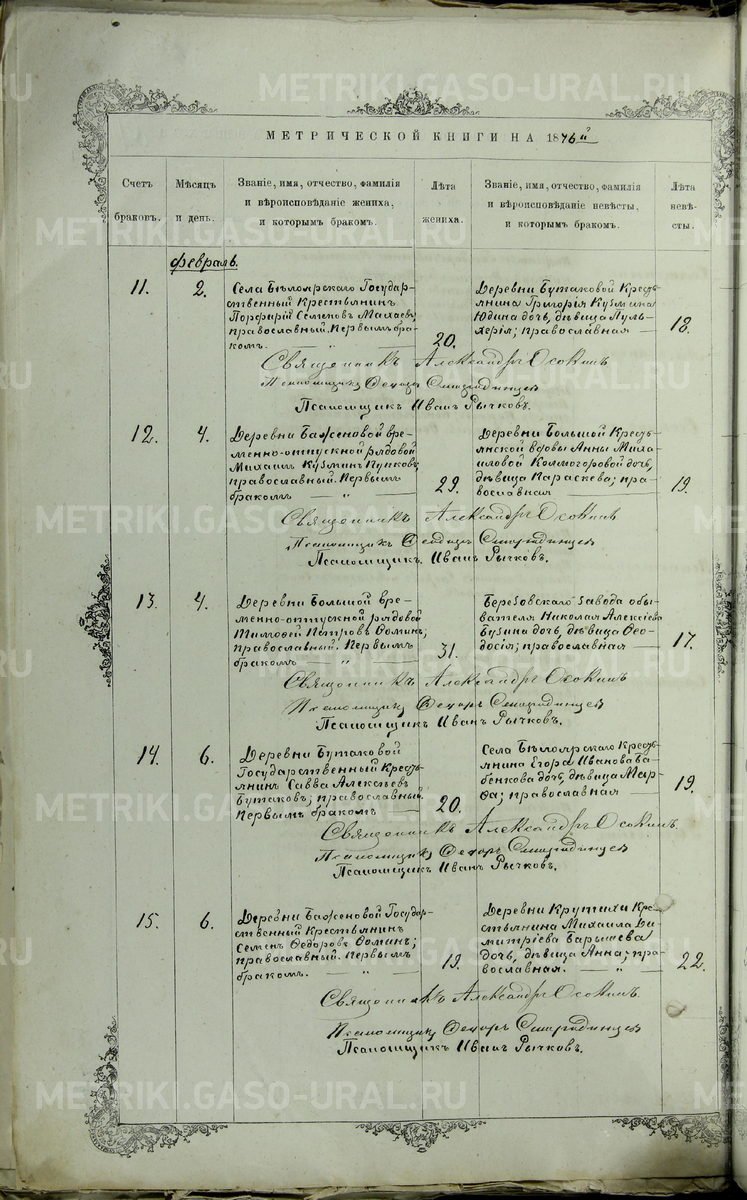 МЕТРИЧЕСКОЙ КНИГИ НА 1876й
Счетъ браковъ.
Мѣсяцъ и день.
Званіе, имя, отчество, фамилія
и вѣроисповѣданіе жениха,
и которымъ бракомъ.
Лѣта жениха.
Званіе, имя, отчество, фамилія
и вѣроисповѣданіе невѣсты,
и которымъ бракомъ.
Лѣта невѣ-
сты.
Февраль.
11.
2.
Села Бѣлоярскаго Государ-
ственный Крестьянинъ
Порфирій Семеновъ
православный. Первымъ бра-
комъ. — „ —
20.
Деревни Бутаковой Кресть-
янина Григорія Кузмина
Юдина дочь, дѣвица Пуль-
херія; православная —
18.
Священникъ Александръ Осокинъ
Псаломщикъ Ѳедоръ
Псаломщикъ Иванъ Рычковъ.
12.
4.
Деревни Баженовой вре-
менно-отпускной рядовой
Михаилъ Кузминъ Пупковъ,
православный. Первымъ
бракомъ — „ —
29.
Деревни Большой Кресть-
янской вдовы Анны Миха-
иловой Колмогоровой дочь,
дѣвица Параскева; пра-
вославная —
19.
Священникъ Александръ Осокинъ
Псаломщикъ Ѳеодоръ
Псаломщикъ Иванъ Рычковъ.
13.
4.
Деревни Большой вре-
менно-отпускной рядовой
Тимофей Петровъ Ѳоминъ;
православный. Первымъ
бракомъ — „
31.
Березовскаго завода обы-
вателя Николая Алексѣева
Бузина дочь, дѣвица Ѳео-
досія; православная —
17.
Священникъ Александръ Осокинъ
Псаломщикъ Ѳедоръ
Псаломщикъ Иванъ Рычковъ.
14.
6.
Деревни Бутаковой
Государственный Кресть-
янинъ Савва Алексѣевъ
Бутаковъ; православный.
Первымъ бракомъ —
20.
Села Бѣлоярскаго Кресть-
янина Егора Иванова Ба-
бенкова дочь, дѣвица Мар-
ѳа; православная —
19.
Священникъ Александръ Осокинъ.
Псаломщикъ Ѳедоръ
Псаломщикъ Иванъ Рычковъ.
15.
6.
Деревни Баженовой Государ-
ственный Крестьянинъ
Семенъ Ѳедоровъ Ѳоминъ;
православный. Первымъ
бракомъ. — „ —
19.
Деревни Крутихи Кре-
стьянина Михаила Ди-
митріева Барышева
дочь, дѣвица Анна; пра-
вославная. — „ —
22.
Священникъ Александръ Осокинъ.
Псаломщикъ Ѳедоръ
Псаломщикъ Иванъ Рычковъ.
METRIKI.GASO-URAL.RU